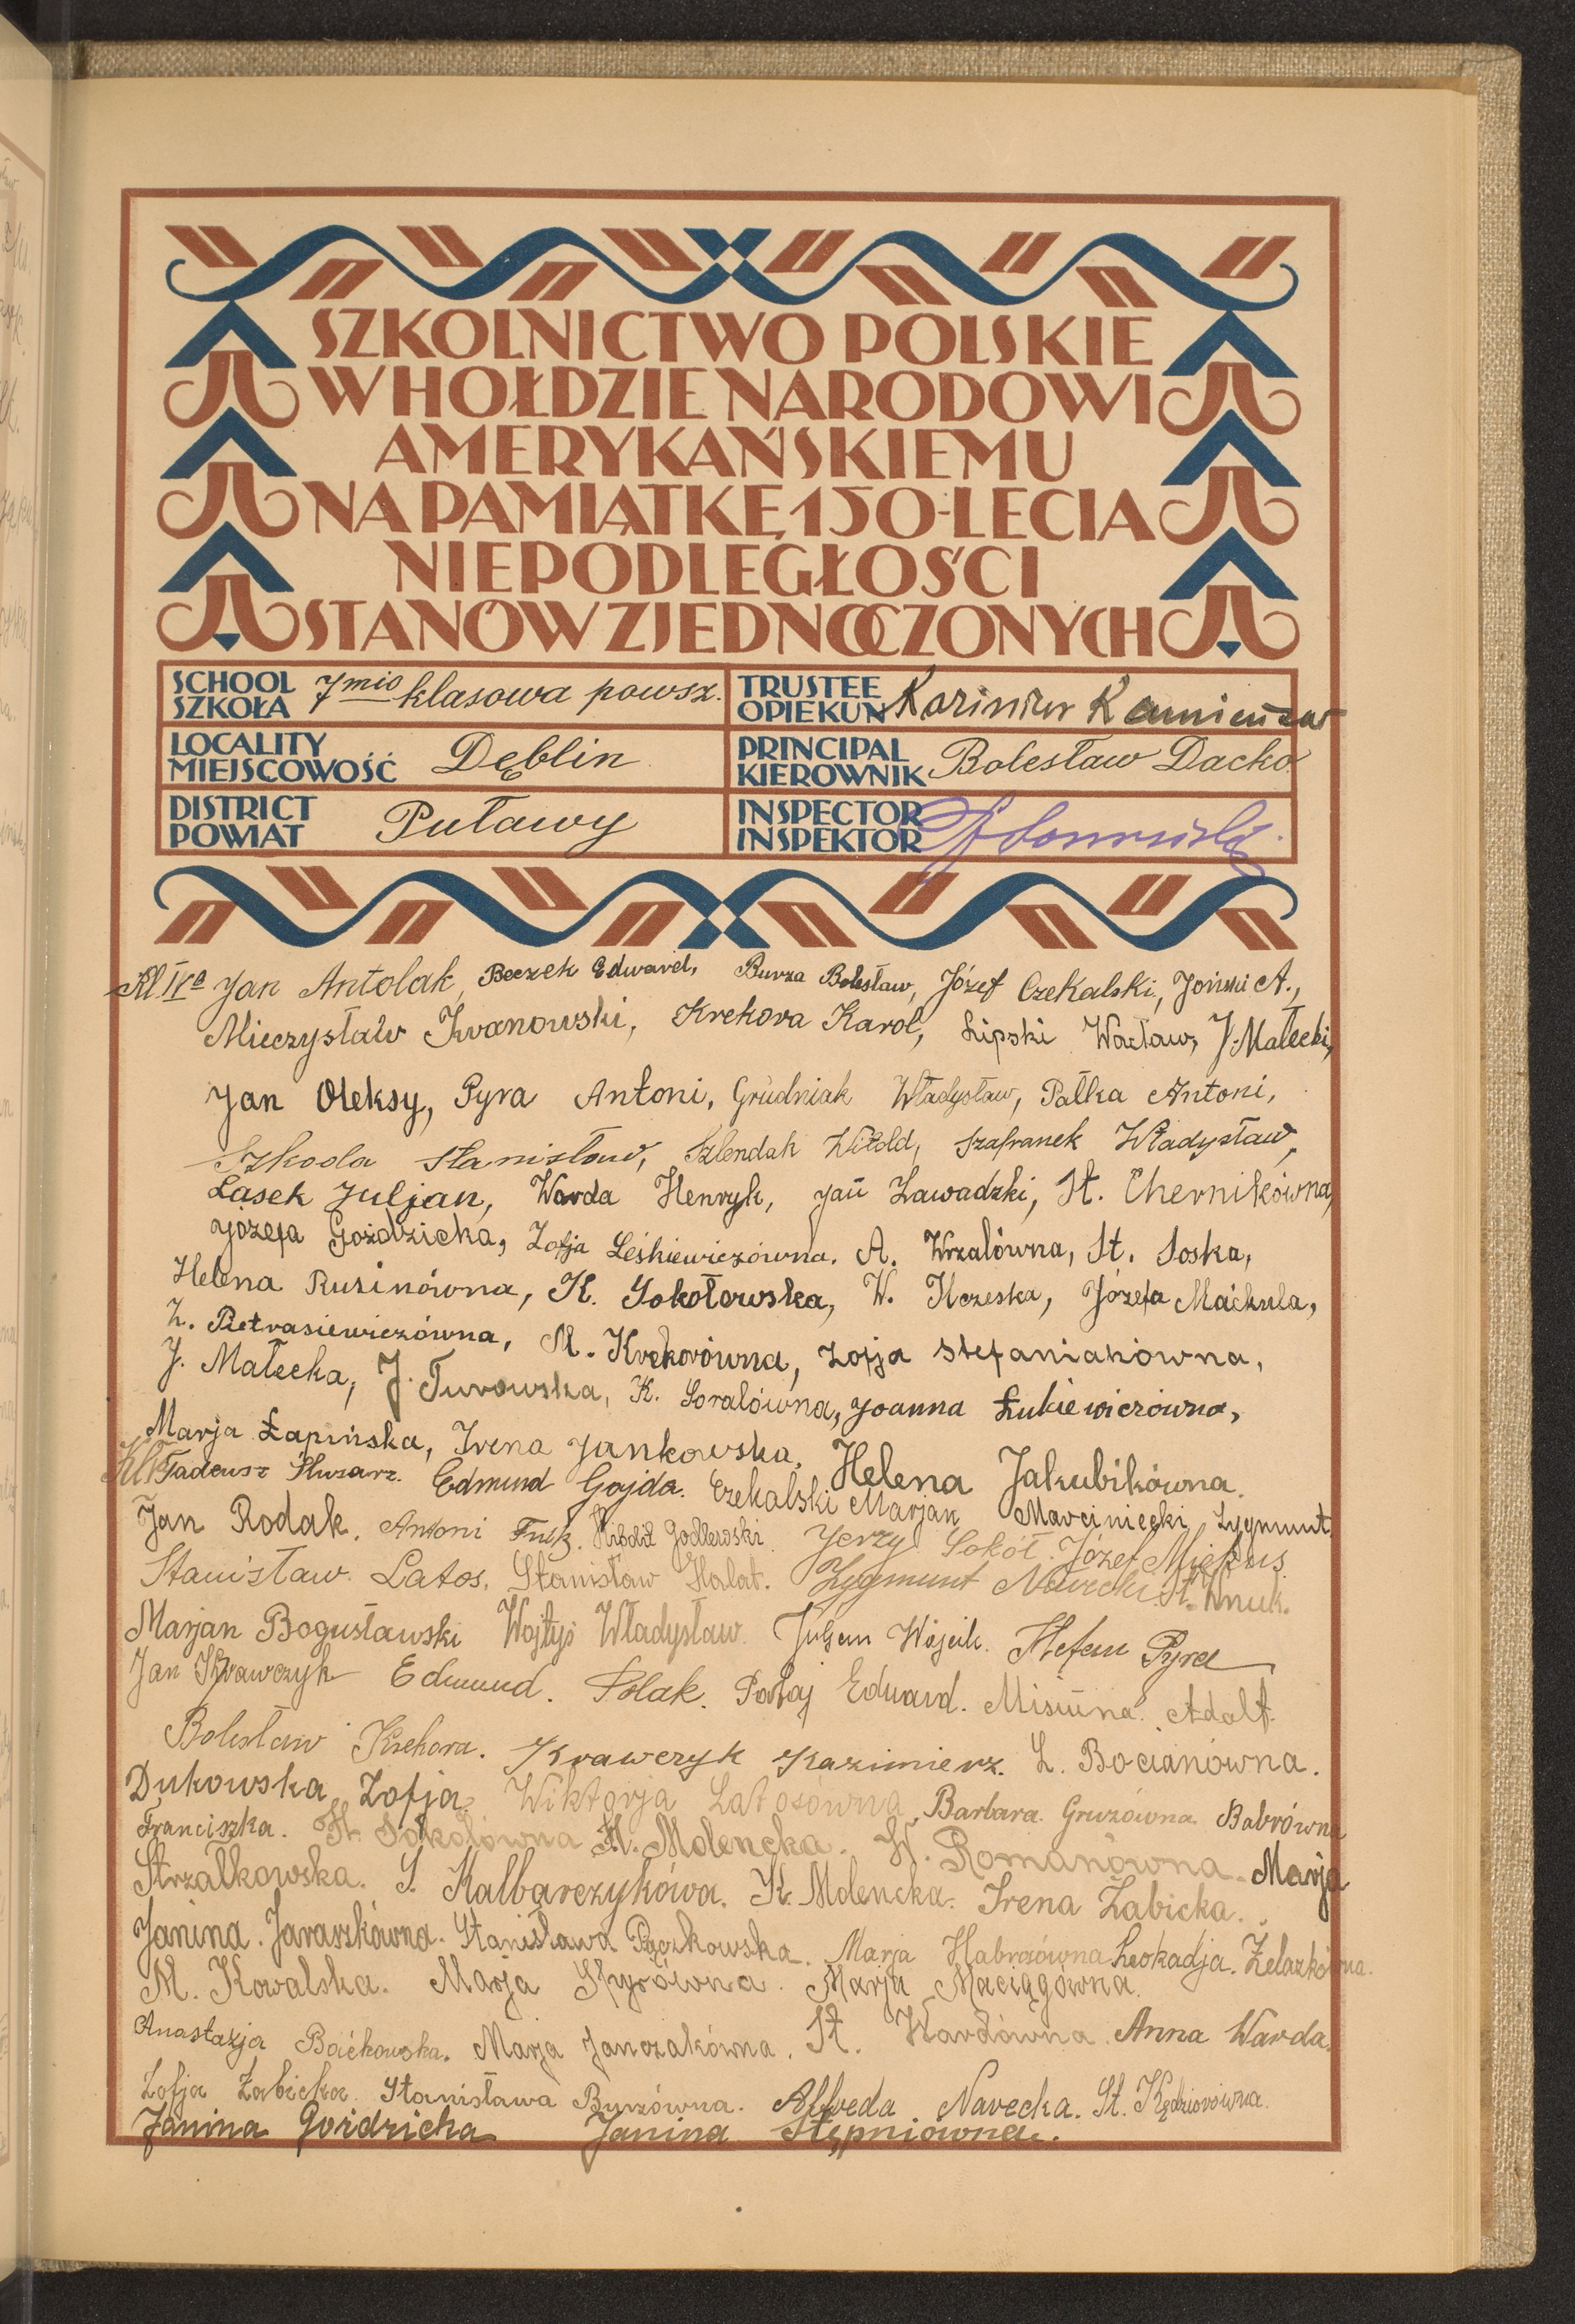 SZKOLNICTWO POLSKIE
W HOŁDZIE NARODOWI
AMERYKAŃSKIEMU
NA PAMIĄTKĘ 150-LECIA
NIEPODLEGŁOŚCI
STANÓW ZJEDNOCZONYCH
SCHOOL
SZKOŁA 7mio klasowa powsz.
TRUSTEE
OPIEKUN Kazimier
LOCALITY
MIEJSCOWOŚĆ Dęblin
PRINCIPAL
KIEROWNIK Bolesław Dacko
DISTRICT
POWIAT Puławy
INSPECTOR
INSPEKTOR
Kl IVa Jan Antolak, Beczek Edward, Burza Bolesław, Józef Czekalski, A.,
Mieczysław Iwanowski, Krekora Karol, Lipski Wacław, J. Małecki,
Jan Oleksy, Pyra Antoni, Grudniak Władysław, Pałka Antoni,
Szkoda Stanisław, Szlendak Witold, Szafranek Władysław,
Lasek Juljan, Warda Henryk, Jan Zawadzki, St. Chernikówna,
Józefa Goździcka, Zofja Leśkiewiczówna, A. Wrzalówna, St. Soska,
Helena Rusinówna, K. Sokołowska, W. Kczeska, Józefa Maćkula,
Z. Pietrasiewiczówna, M. Krekorówna, Zofja Stefaniakówna,
J. Małecka, J. Turowska, K. Soralówna, Joanna Łukiewiczówna,
Marja Łapińska, Irena Jankowska, Helena Jakubikówna.
Tadeusz Huzarz. Edmund Gajda. Czekalski Marjan Marciniecki Zygmunt
Jan Rodak. Antoni Godlewski. Jerzy Sokół. Józef
Stanisław Latos. Stanisław Halat. Zygmunt Navecki St. Wnuk.
Marjan Bogusławski Wojtyś Władysław. Juljan Wójcik. Stefan Pyra
Jan Krawczyk Edmund. Polak. Pataj Eduard. Misiuna. Adolf.
Bolesław Krekora. Krawczyk Kazimierz. L. Bocianówna.
Dukowska Zofja Wiktorja Latosówna Barbara Gruzówna Babrówna
Franciszka. St. Sokołówna H. Molencka. W. Romanówna. Marja
Strzałkowska. S. Kalbarczykówa. K. Molencka. Irena Żabicka.
Janina Jaraszkówna. Stanisława Pączkowska. Marja Leokadja. Żelazkówna.
M. Kowalska. Marja Marja Maciągówna.
Anastazja Baćkowska. Marja Janczakówna. St. Wardówna Anna Warda.
Zofja Żabicka Stanisława Burzówna. Alfreda Navecka. St. Kędziorówna.
Janina Goździcka Janina Stępniówna.